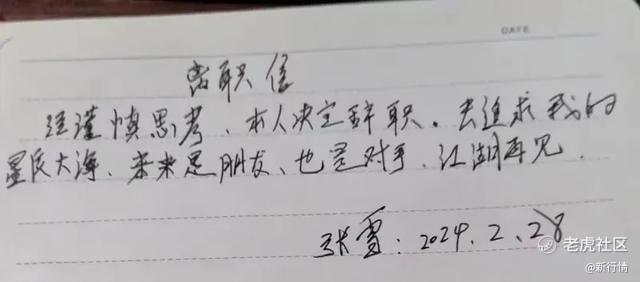 DATE
离职信
经谨慎思考、本人决定辞职。去追求我的
星辰大海、未来是朋友、也是对手、江湖再见.
张雪: 2024.2.28
老虎社区
@新行情